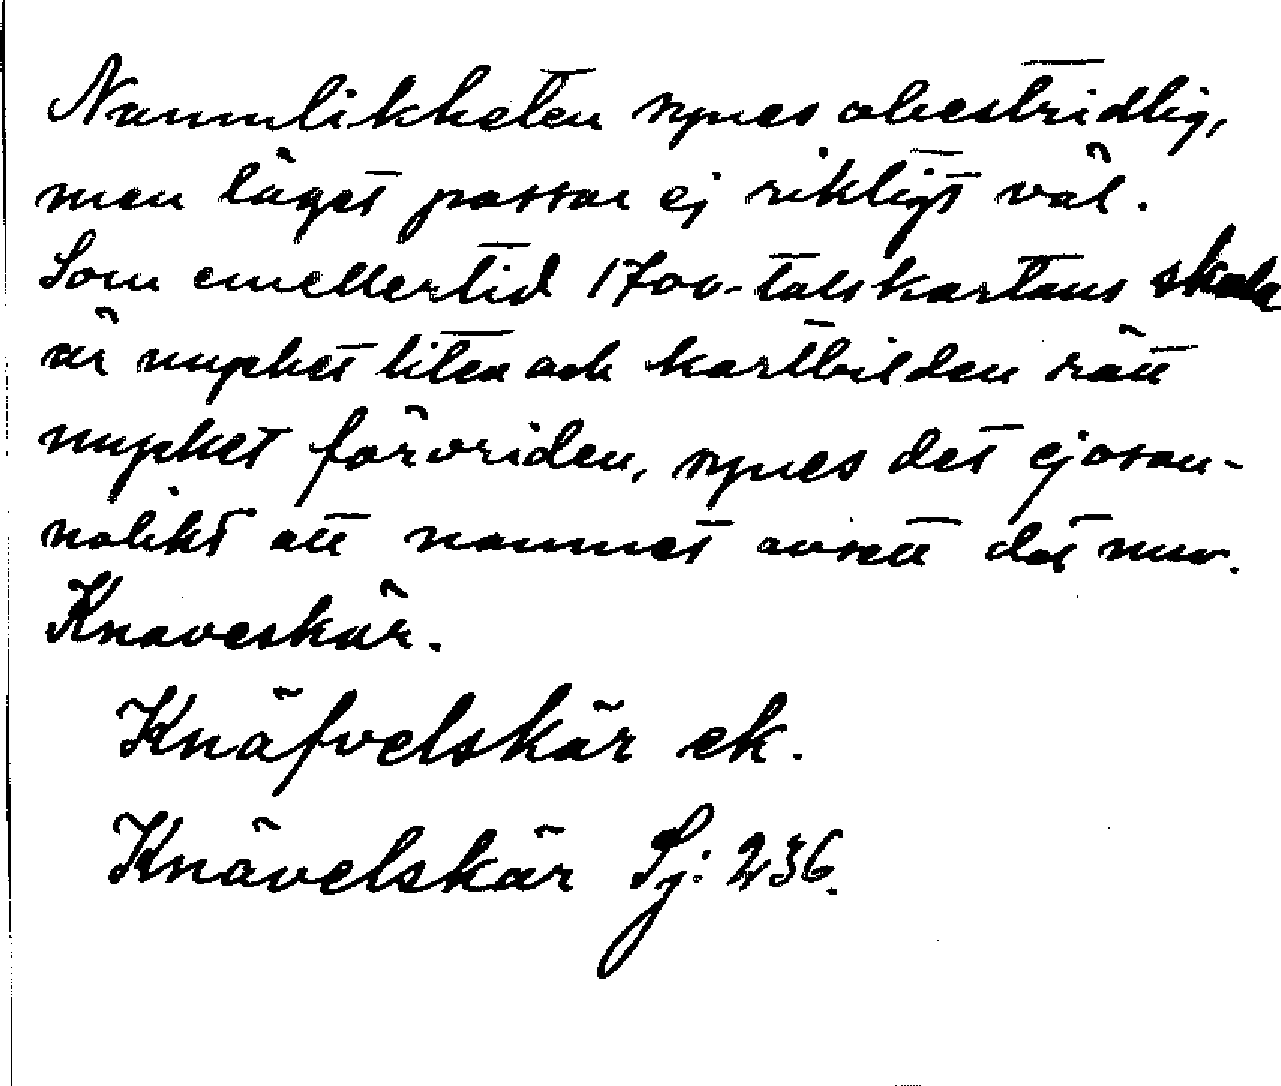 Namnlikheten synes obestridlig,
men läget passar ej riktigt väl.
Som emellertid 1700-talskartans skala
är mycket liten och kartbilden rätt
mycket förvriden, synes det ej osan-
nolikt att namnet avsett det nuv.
Knaveskär.
Knäfvelskär ek.
Knävelskär Sj: 236.